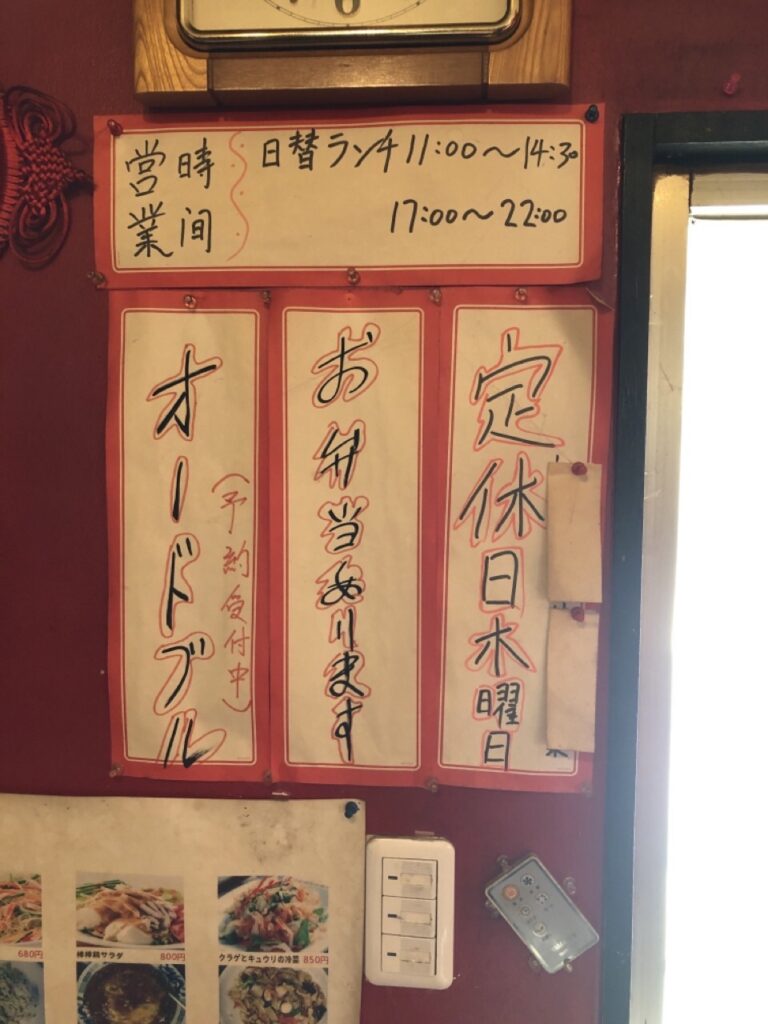 6
営業時间
日替ランチ11:00〜14:30
17:00〜22:00
定休日木曜日
お弁当あります
オードブル
(予約受付中)
680円
棒棒鶏サラダ 800円
クラゲとキュウリの冷菜 850円